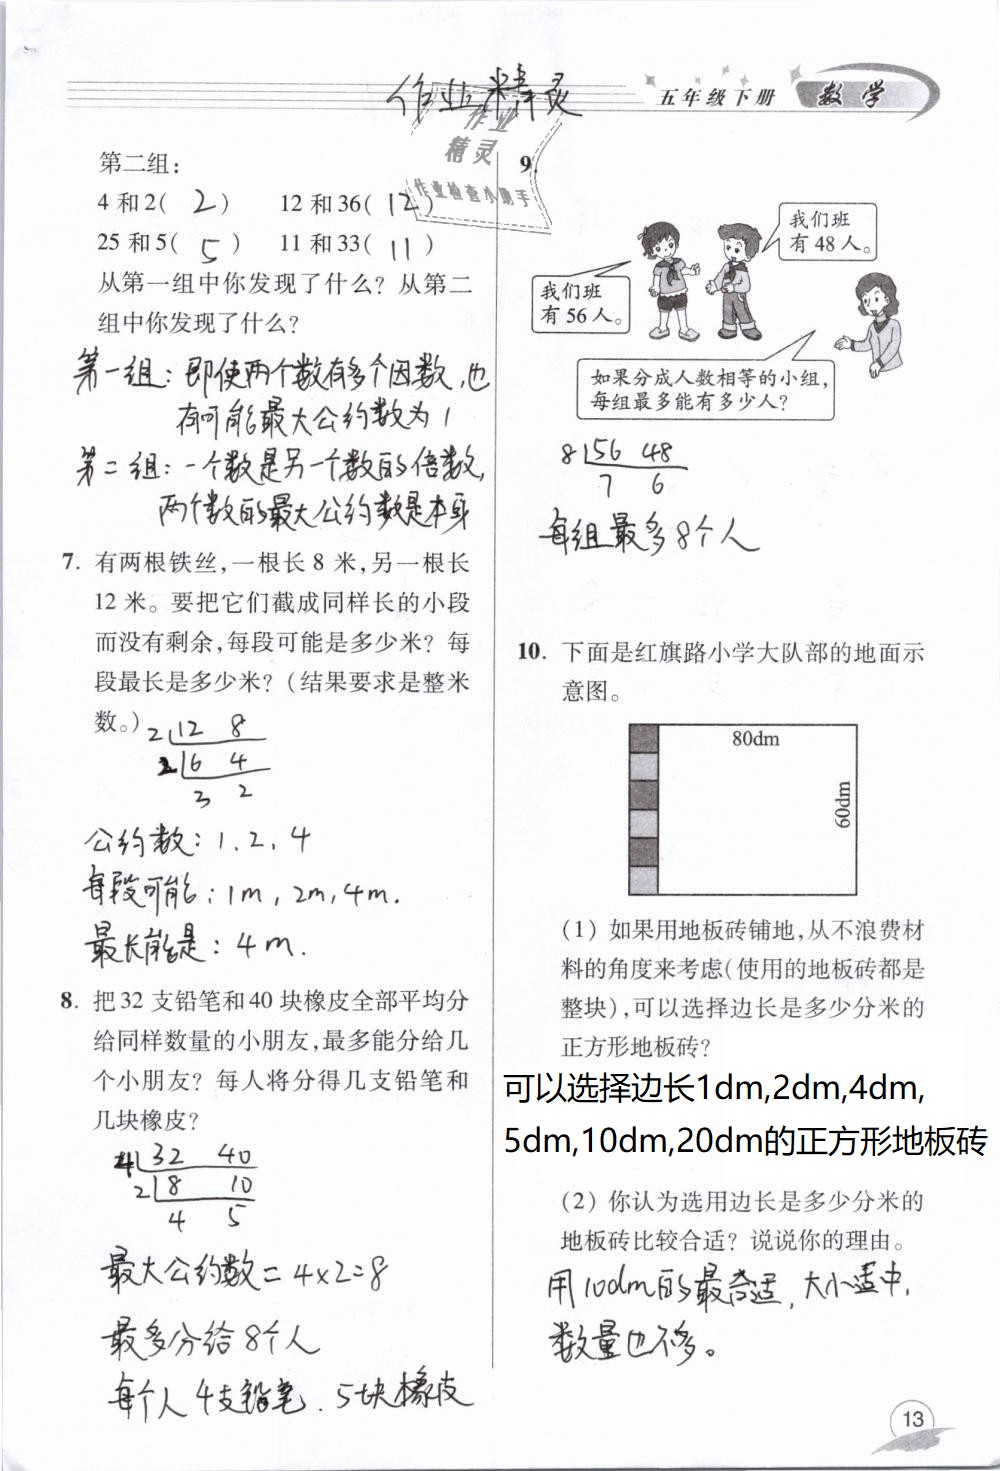 五年级下册 数学
作业精灵
作业
精灵
作业检查小助手
第二组：
4 和 2( 2 ) 12 和 36( 12 )
25 和 5( 5 ) 11 和 33( 11 )
从第一组中你发现了什么？从第二
组中你发现了什么？
第一组：即使两个数有多个因数，也
有可能最大公约数为1
第二组：一个数是另一个数的倍数，
两个数的最大公约数是本身
7. 有两根铁丝，一根长 8 米，另一根长
12 米。要把它们截成同样长的小段
而没有剩余，每段可能是多少米？每
段最长是多少米？（结果要求是整米
数。）
2 12 8
2 6 4
3 2
公约数：1、2、4
每段可能：1m，2m，4m.
最长能是：4m.
8. 把 32 支铅笔和 40 块橡皮全部平均分
给同样数量的小朋友，最多能分给几
个小朋友？每人将分得几支铅笔和
几块橡皮？
4 32 40
2 8 10
4 5
最大公约数=4×2=8
最多分给8个人
每个人4支铅笔．5块橡皮
9.
我们班
有 48 人。
我们班
有 56 人。
如果分成人数相等的小组，
每组最多能有多少人？
8 56 48
7 6
每组最多8个人
10. 下面是红旗路小学大队部的地面示
意图。
80dm
60dm
（1）如果用地板砖铺地，从不浪费材
料的角度来考虑（使用的地板砖都是
整块），可以选择边长是多少分米的
正方形地板砖？
可以选择边长1dm,2dm,4dm,
5dm,10dm,20dm的正方形地板砖
（2）你认为选用边长是多少分米的
地板砖比较合适？说说你的理由。
用10dm的最合适，大小适中，
数量也不多。
13